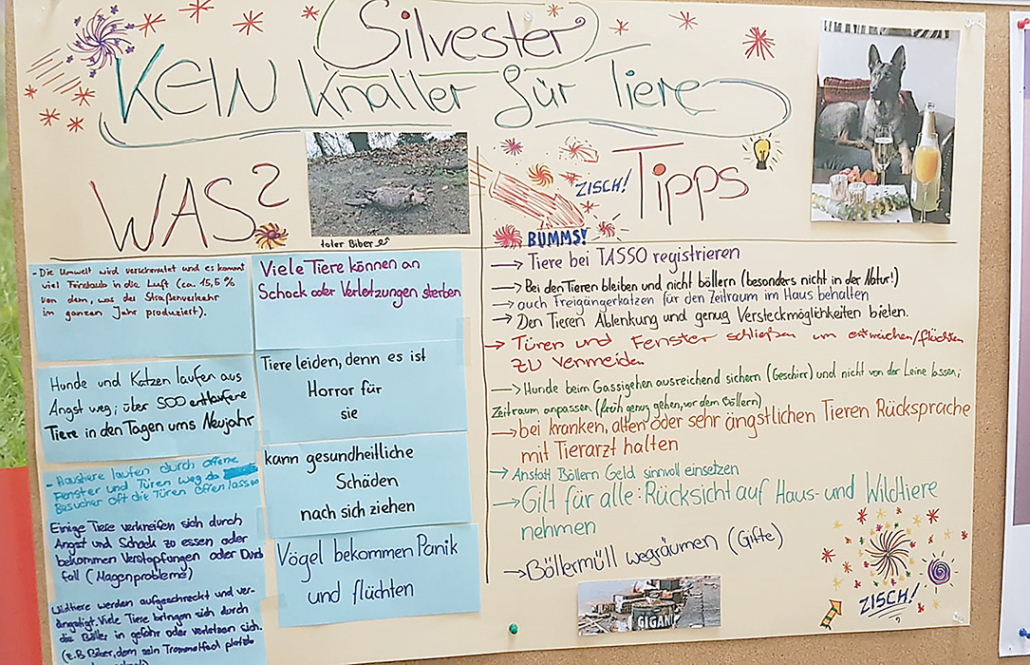 Silvester
KEIN Knaller für Tiere
WAS?
toter Biber
- Die Umwelt wird verschmutzt und es kommt
viel Feinstaub in die Luft (ca. 15,5 %
von dem, was der Straßenverkehr
im ganzen Jahr produziert).
Hunde und Katzen laufen aus
Angst weg; über 500 entlaufene
Tiere in den Tagen ums Neujahr
- Haustiere laufen durch offene
Fenster und Türen weg da
Besucher oft die Türen offen lassen
Einige Tiere verkneifen sich durch
Angst und Schock zu essen oder
bekommen Verstopfungen oder Durch
fall (Magenprobleme)
Wildtiere werden aufgeschreckt und ver-
ängstigt. Viele Tiere bringen sich durch
die Böller in gefahr oder verletzen sich.
(z.B Biber, dem sein Trommelfell platzte
Viele Tiere können an
Schock oder Verletzungen sterben
Tiere leiden, denn es ist
Horror für
sie
kann gesundheitliche
Schäden
nach sich ziehen
Vögel bekommen Panik
und flüchten
ZISCH!
BUMMS!
Tipps
→ Tiere bei TASSO registrieren
→ Bei den Tieren bleiben und nicht böllern (besonders nicht in der Natur!)
→ auch Freigängerkatzen für den Zeitraum im Haus behalten
→ Den Tieren Ablenkung und genug Versteckmöglichkeiten bieten.
→ Türen und Fenster schließen um entweichen/flüchten
zu vermeiden
→ Hunde beim Gassigehen ausreichend sichern (Geschirr) und nicht von der Leine lassen;
Zeitraum anpassen (früh genug gehen, vor dem Böllern)
→ bei kranken, alten oder sehr ängstlichen Tieren Rücksprache
mit Tierarzt halten
→ Anstatt Böllern Geld sinnvoll einsetzen
→ Gilt für alle: Rücksicht auf Haus- und Wildtiere
nehmen
→ Böllermüll wegräumen (Gifte)
GIGAN
ZISCH!